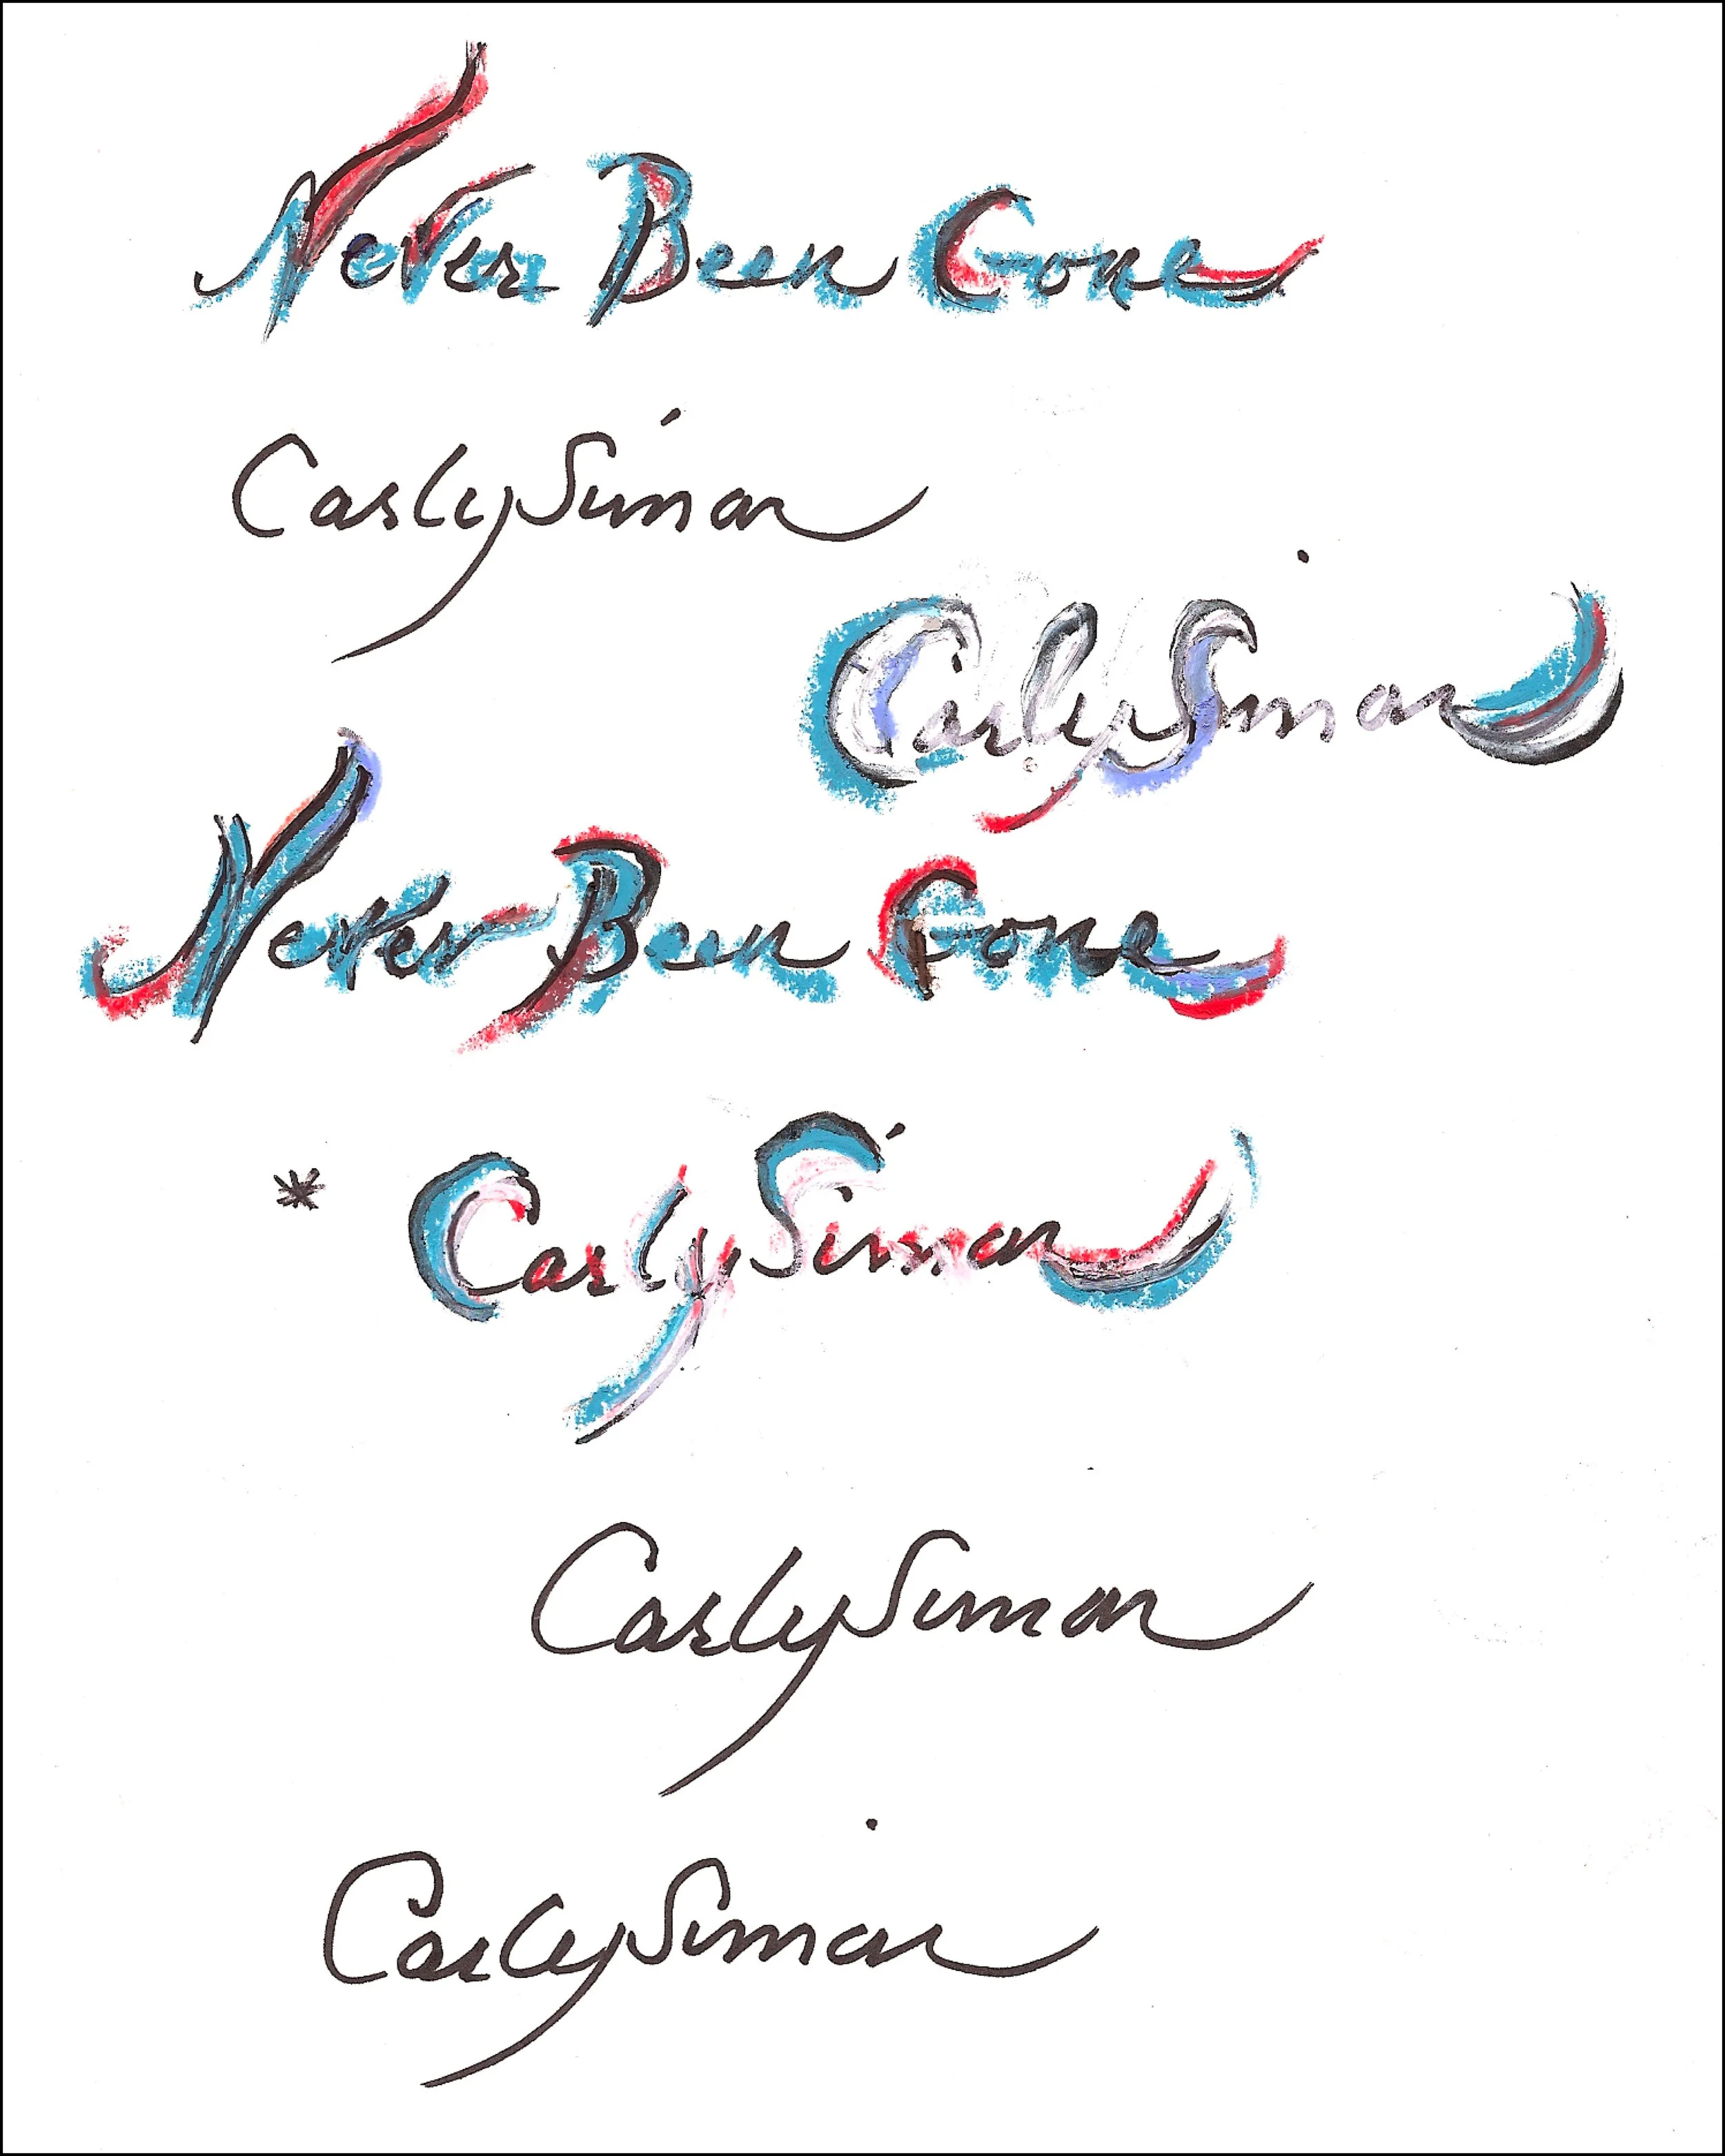 Never Been Gone
Carly Simon
Carly Simon
Never Been Gone
* Carly Simon
Carly Simon
Carly Simon